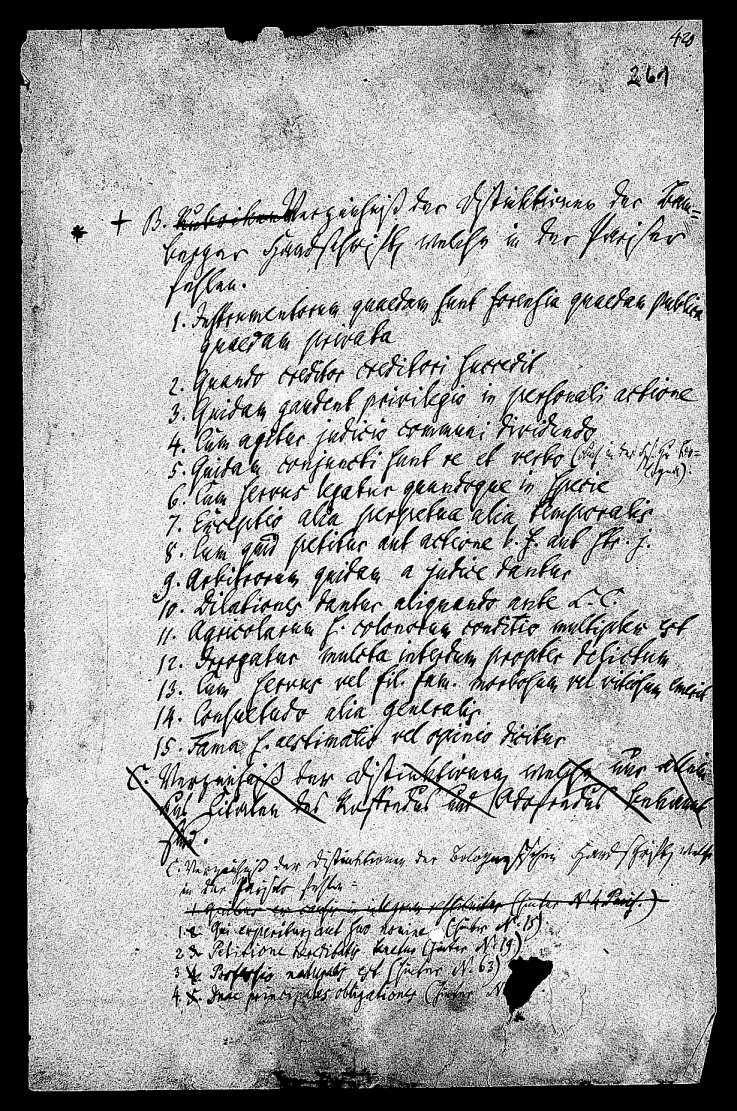 420
261
* + B. Rubriken Verzeichniß der Distinktionen der Bam=
berger Handschrift, welche in der Pariser
fehlen.
1. Instrumentorum quaedam sunt forensia quaedam publica
quaedam privata
2. Quando creditor creditori succedit
3. Quidam gaudent privilegio in personali actione
4. Cum agitur judicio communi dividundo
5. Quidam conjuncti sunt re et verbo (auch in der Hs. zu Bo=
logna).
6. Cum servus legatur quandoque in specie
7. Exceptio alia perpetua alia temporalis
8. Cum quid petitur aut actione b. f. aut str. j.
9. Arbitrorum quidam a judice dantur
10. Dilationes dantur aliquando ante L. C.
11. Agricolarum s. colonorum conditio multiplex est
12. Irrogatur mulcta interdum propter delictum
13. Cum servus vel fil. fam. morbosum vel vitiosum emerit
14. Consuetudo alia generalis
15. Fama s. aestimatio vel opinio dicitur
C. Verzeichniß der Distinktionen, welche nur allein
aus Citaten des Roffredus und Odofredus bekannt
sind.
C. Verzeichniß der Distinktionen der Bolognesischen Handschrift, welche
in der Pariser fehlen =
1 in integrum (hinter N. 4 Paris.)
1. 2. Qui experitur aut suo nomine (hinter N. 15)
2 3. Petitione hereditatis tenetur (hinter N. 19)
3 4. Possessio naturalis est (hinter N. 63)
4. 5. Duae principales obligationes (hinter N